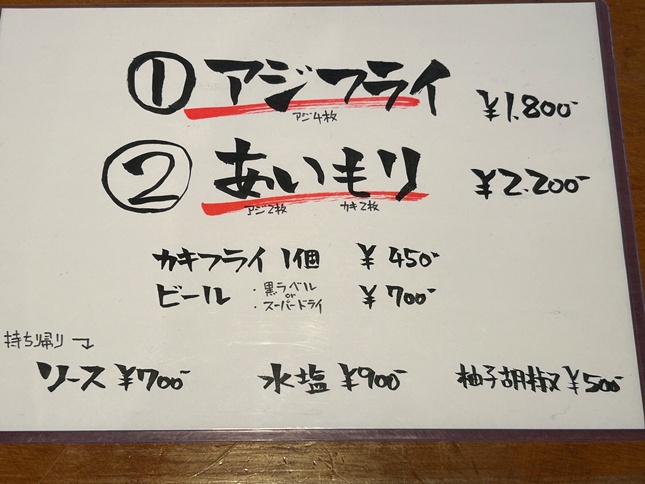 ① アジフライ ¥1.800-
アジ4枚
② あいもり ¥2.200-
アジ2枚 カキ2枚
カキフライ 1個 ¥450-
ビール ・黒ラベル or ・スーパードライ ¥700-
持ち帰り
ソース ¥700- 水塩 ¥900- 柚子胡椒 ¥500-